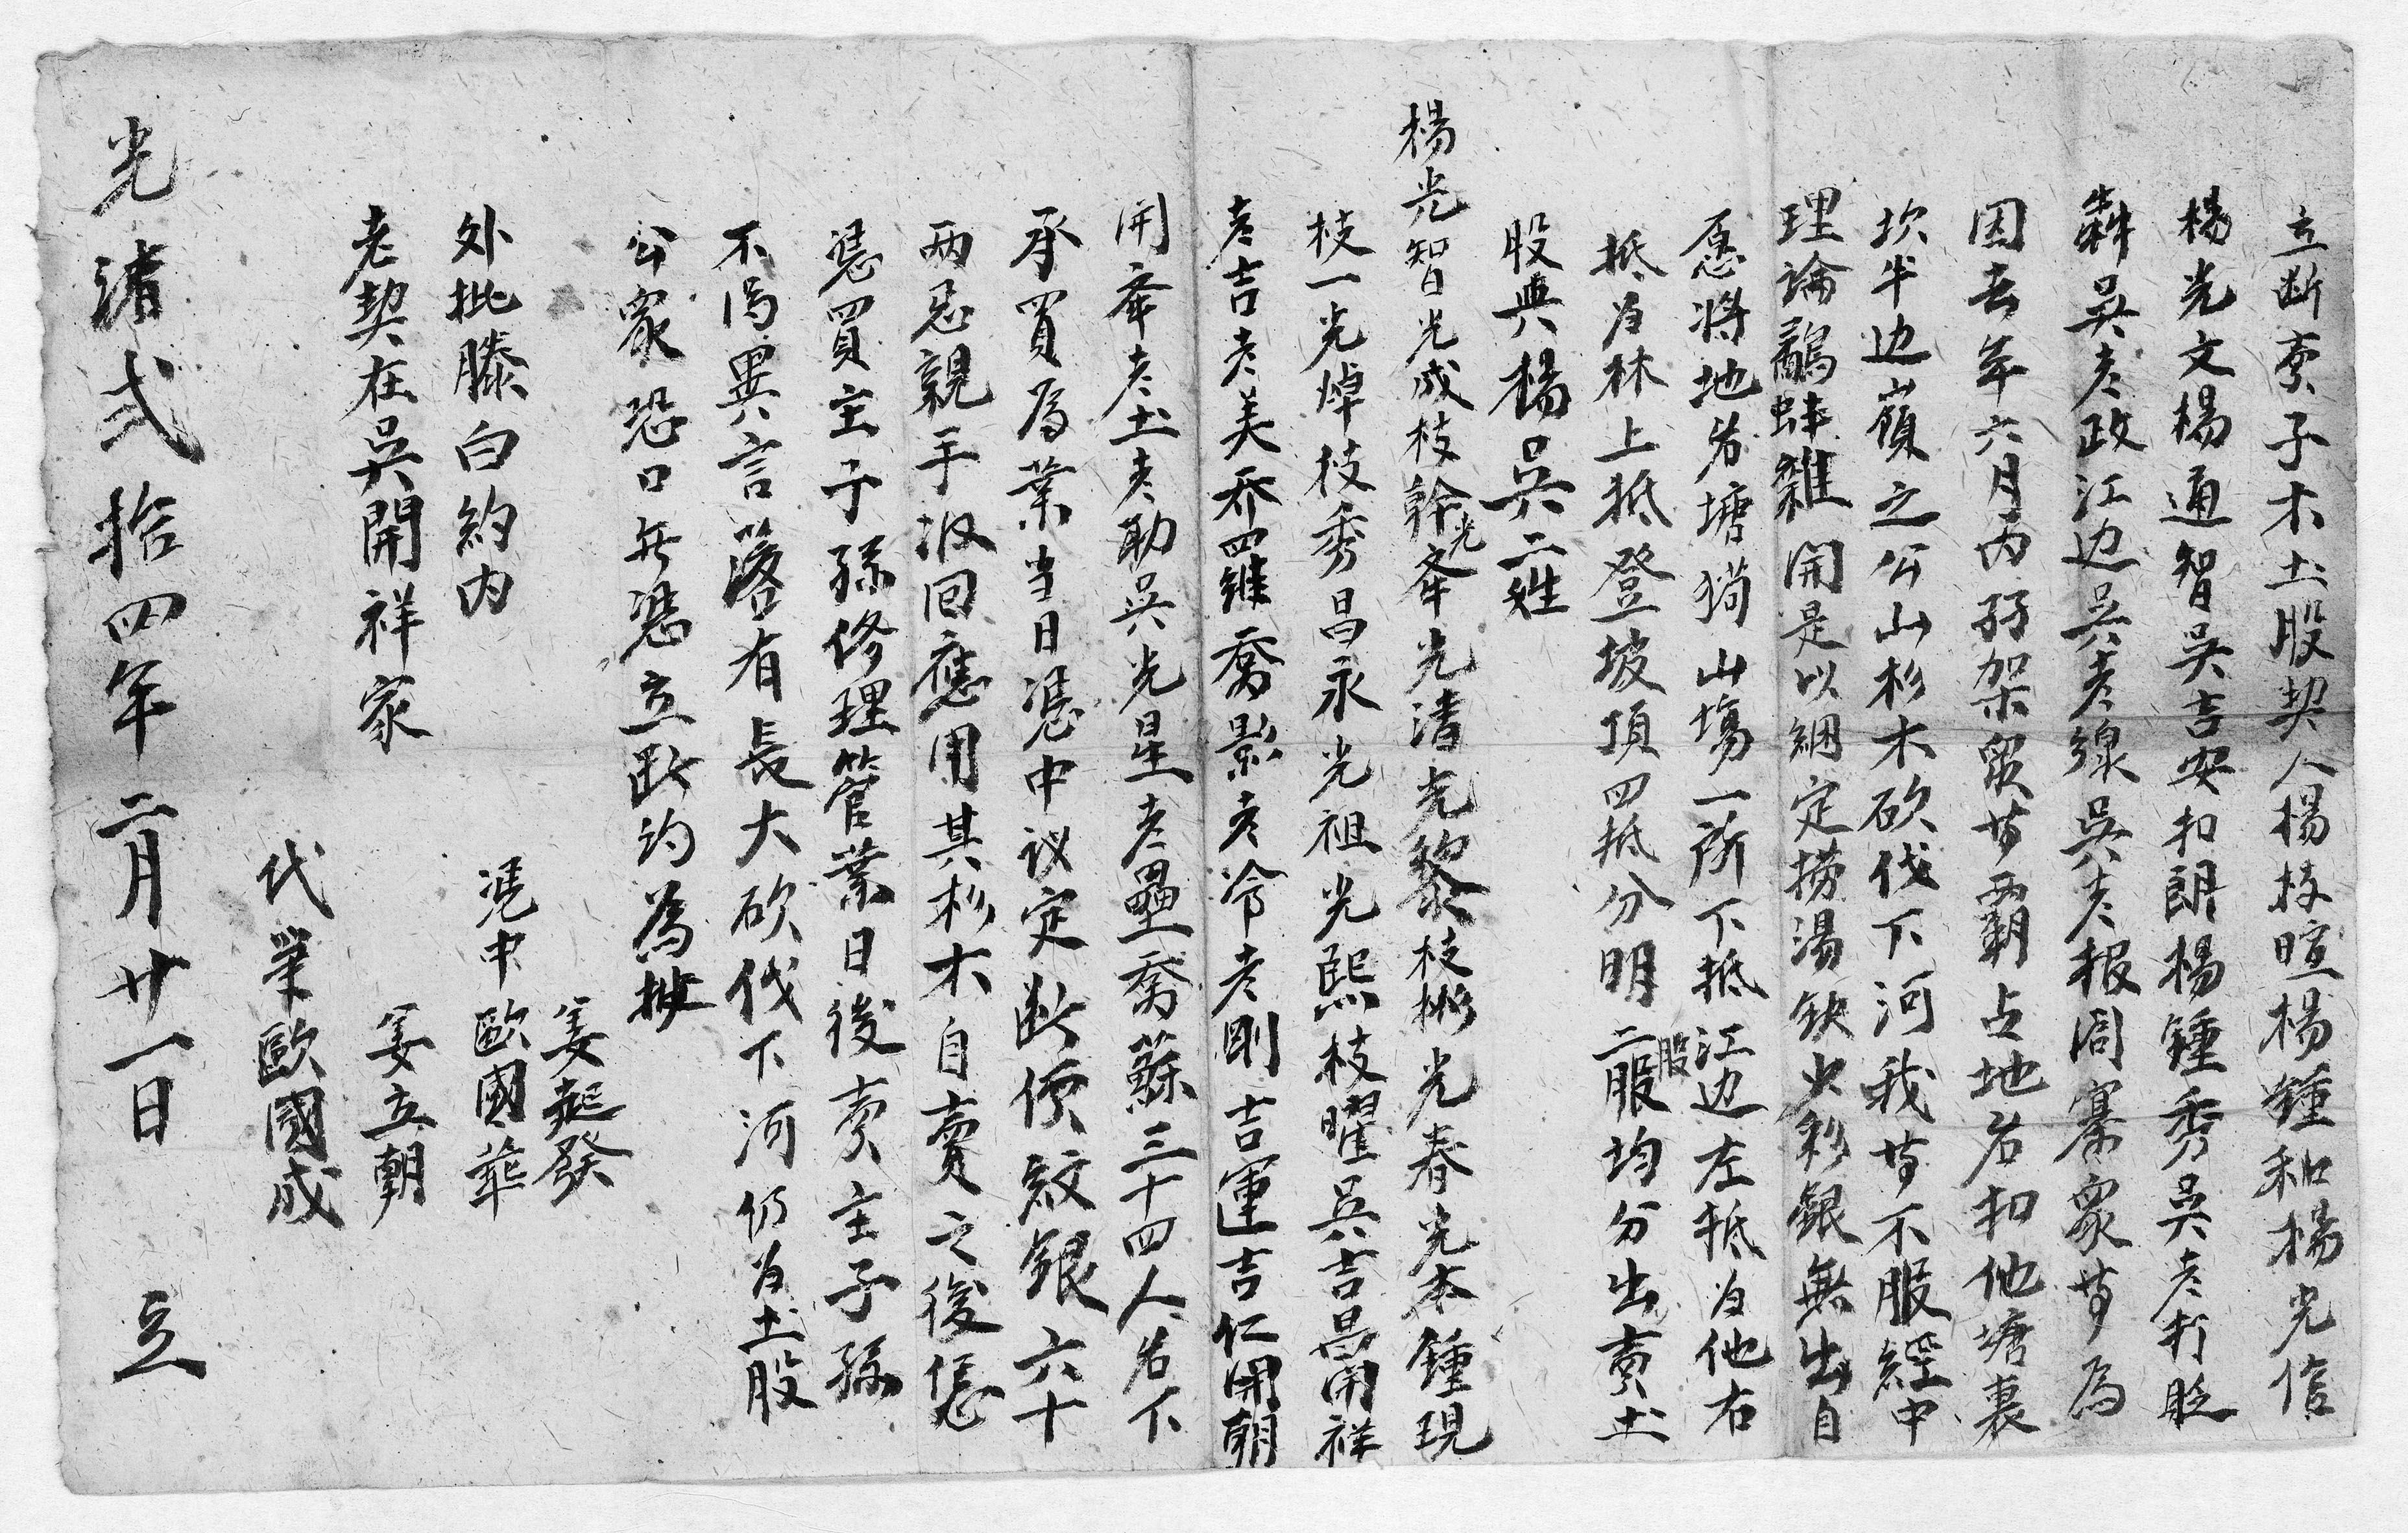 立断賣子木土股契人楊枝暄楊鍾和楊光信
楊光文楊通智吳吉安扣朗楊鍾秀吳老打眨
吳老政江边吳老線吳老报周寨眾等為
因去年六月內孖架眾等覇占地名扣他塘裏
坎半边嶺之公山杉木砍伐下河我等不服經中
理論鷸蚌難開是以綑定捞湯缺少彩銀無出自
愿將地名塘猫山塲一所下抵江边左抵为他右
抵为林上抵登坡頂四抵分明二股均分出賣土
股
股與楊吳二姓
楊光智光成枝幹光奉光清光黎枝彬光春光本鍾現
枝一光焯枝秀昌永光祖光熙枝曜吳吉昌開祥
老吉老美乔四維喬影老冷老剛吉運吉仁開朝
開奉老土老勛吳光星老壘喬蘇三十四人名下
承買為業当日憑中议定断價紋銀六十
两忍親手收回應用其杉木自賣之後憑
憑買主子孫修理管業日後賣主子孫
不得異言落有長大砍伐下河仍为土股
公眾恐口无憑立断约為據
外批滕白約内
老契在吳開祥家
姜起發
憑中歐國華
姜立朝
代筆歐國成
光緒弍拾四年二月廿一日 立